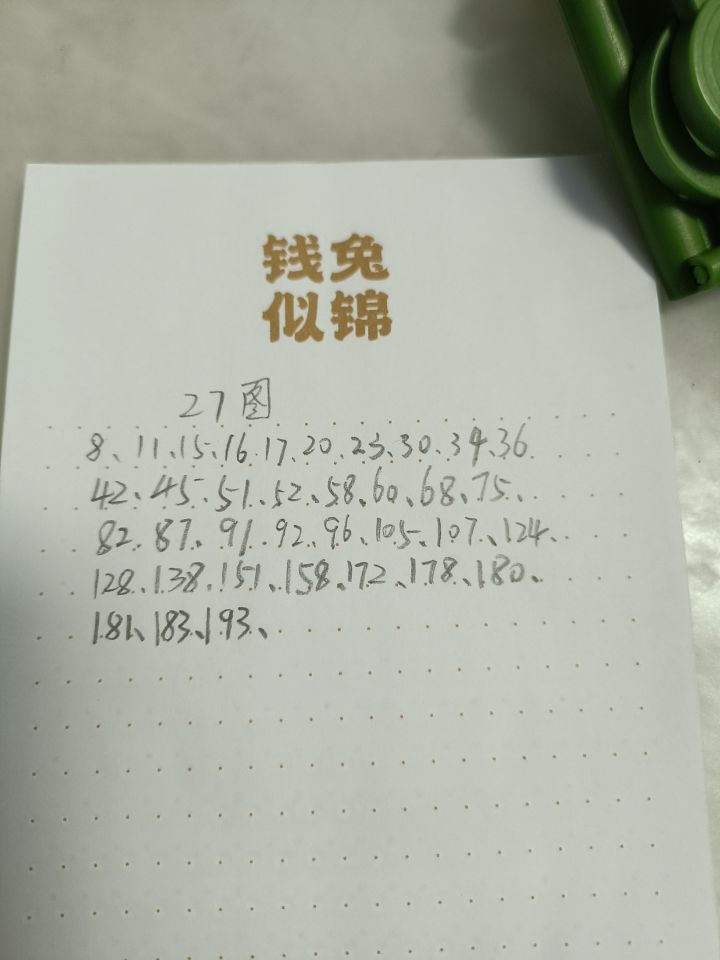 钱兔
似锦
27图
8、11、15、16、17、20、23、30、34、36
42、45、51、52、58、60、68、75、
82、87、91、92、96、105、107、124、
128、138、151、158、172、178、180、
181、183、193、